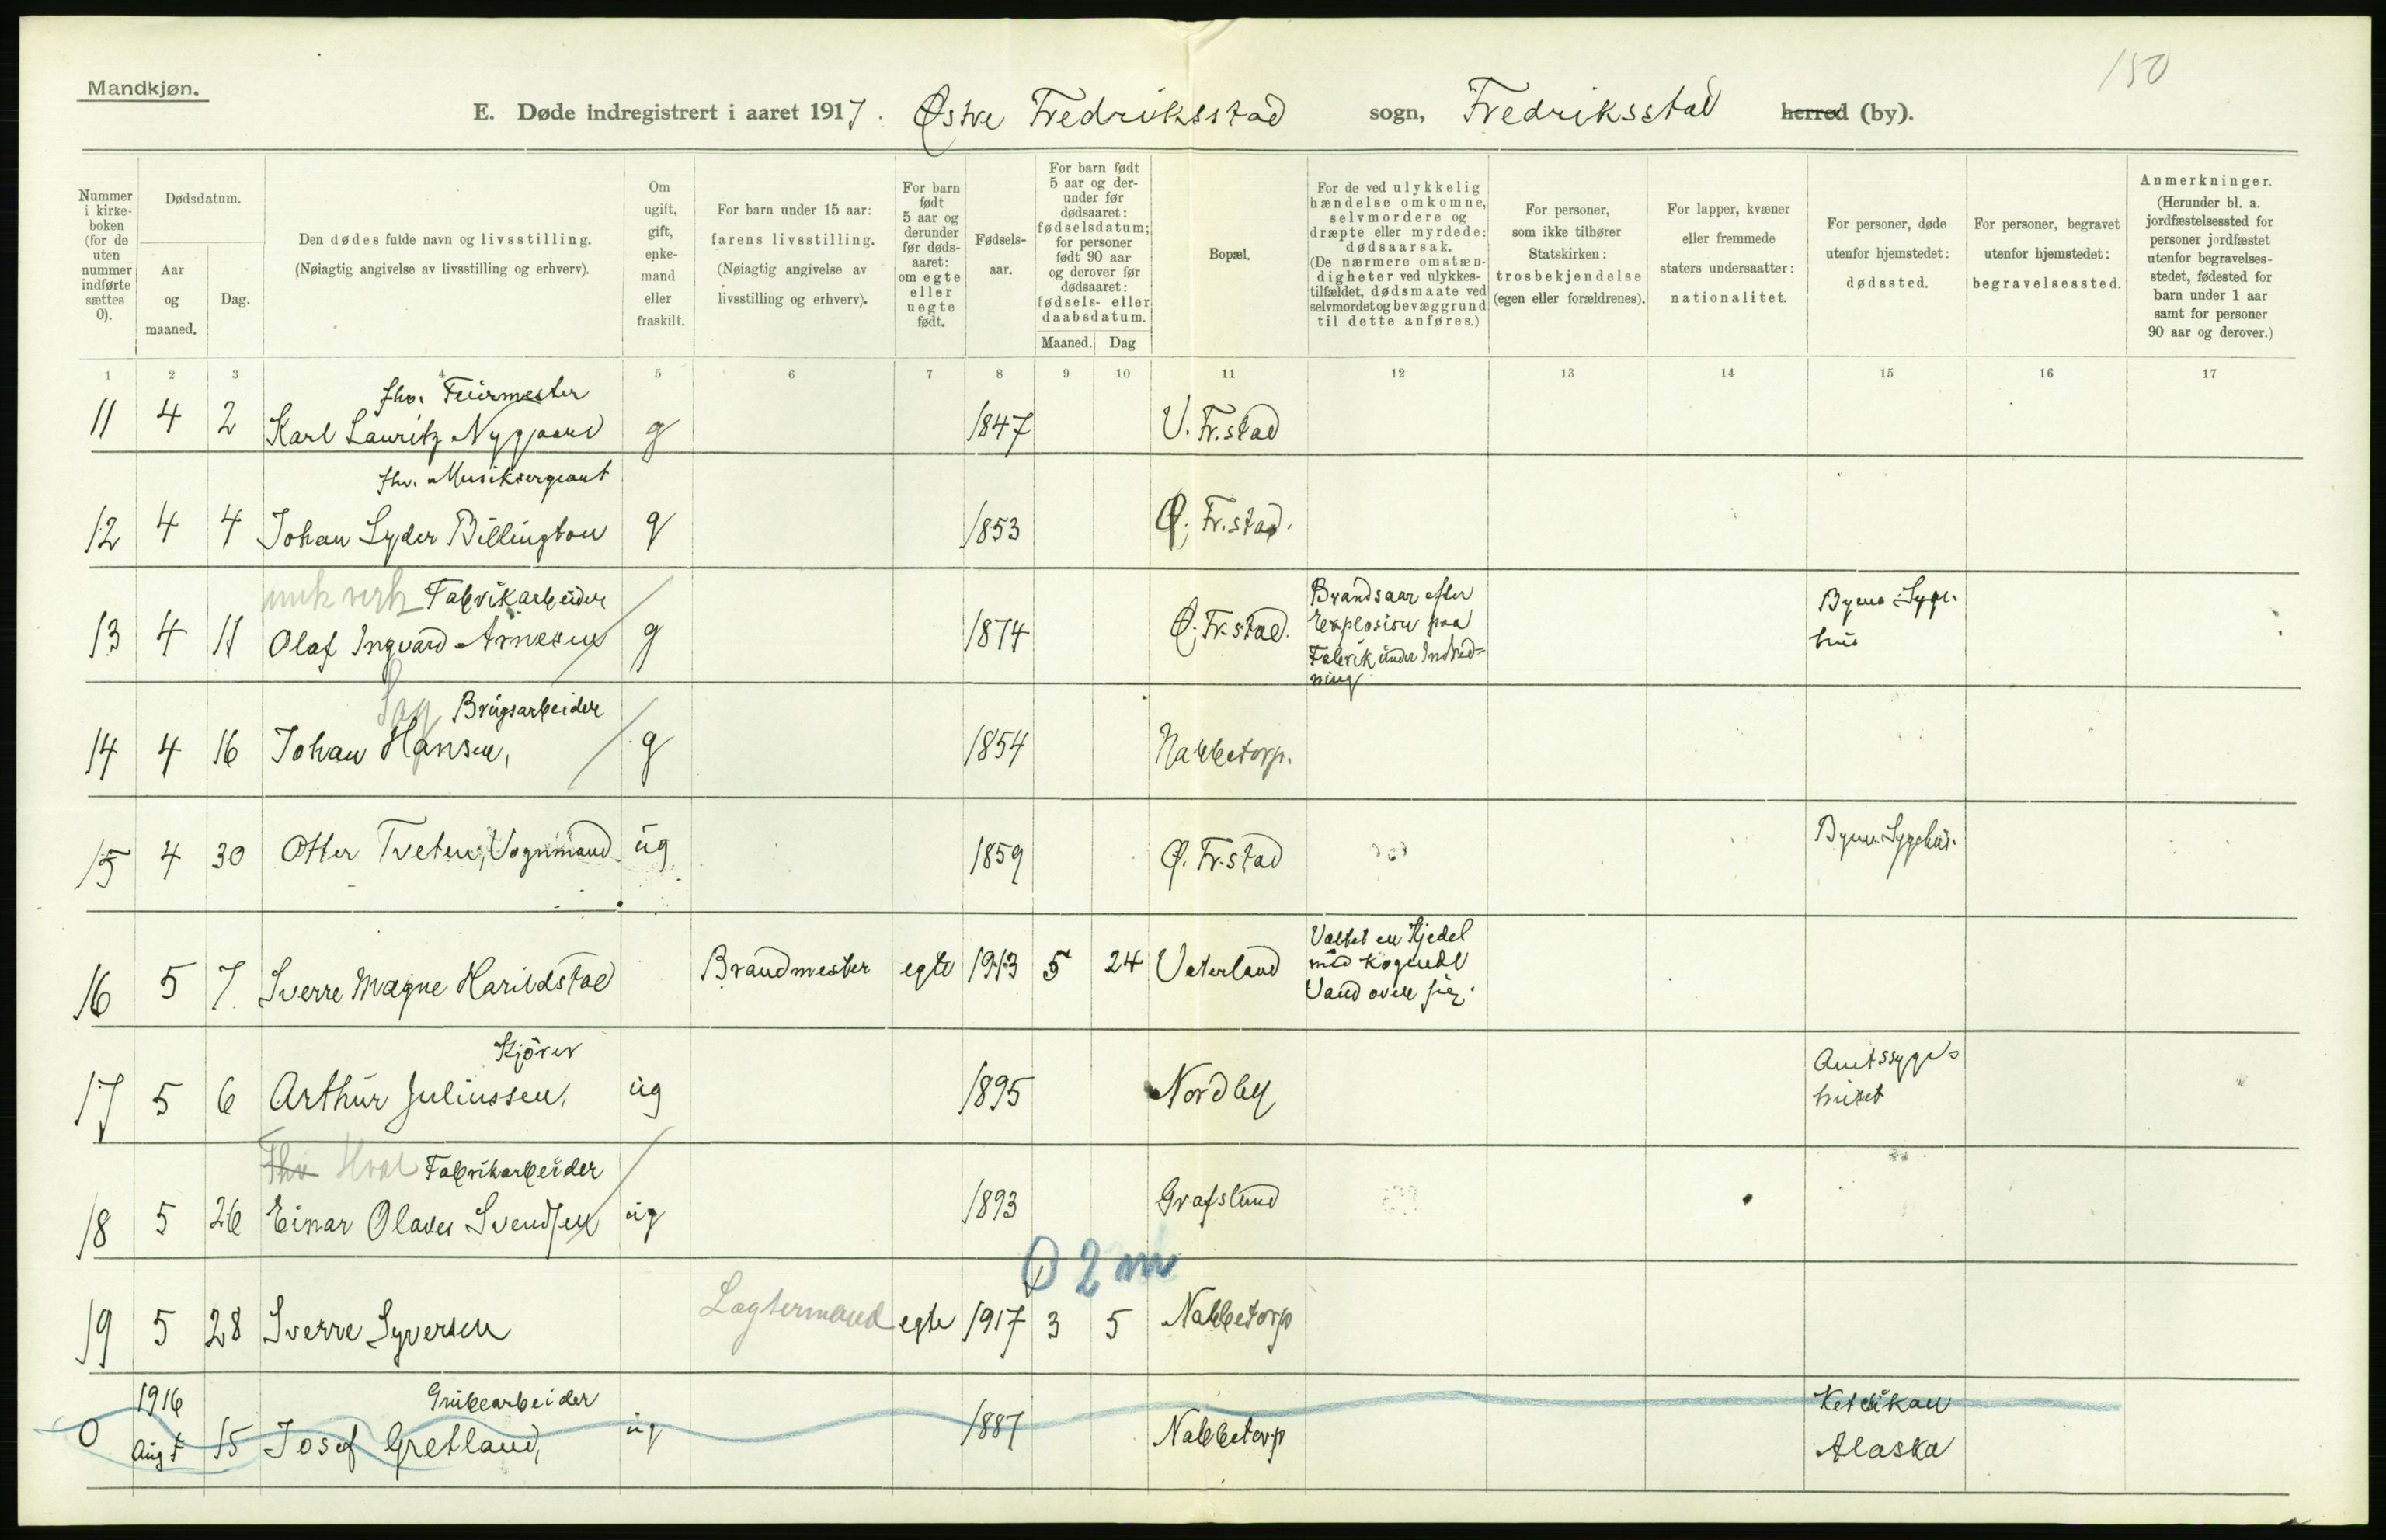 150
Mandkjøn.
E. Døde indregistrert i aaret 1917. Østre Fredriksstad sogn, Fredriksstad herred (by).
Nummer i kirke-boken (for de uten nummer indførte sættes 0).
Dødsdatum.
Aar og maaned.
Dag.
Den dødes fulde navn og livsstilling.
(Nøiagtig angivelse av livsstilling og erhverv).
Om ugift, gift, enke-mand eller fraskilt.
For barn under 15 aar: farens livsstilling.
(Nøiagtig angivelse av livsstilling og erhverv).
For barn født 5 aar og derunder før døds-aaret: om egte eller uegte født.
Fødsels-aar.
For barn født 5 aar og der-under før dødsaaret: fødselsdatum; for personer født 90 aar og derover før dødsaaret: fødsels- eller daabsdatum.
Maaned. Dag
Bopæl.
For de ved ulykkelig hændelse omkomne, selvmordere og dræpte eller myrdede: dødsaarsak.
(De nærmere omstæn-digheter ved ulykkes-tilfældet, dødsmaate ved selvmordet og bevæggrund til dette anføres.)
For personer, som ikke tilhører Statskirken: trosbekjendelse (egen eller forældrenes).
For lapper, kvæner eller fremmede staters undersaatter: nationalitet.
For personer, døde utenfor hjemstedet: dødssted.
For personer, begravet utenfor hjemstedet: begravelsessted.
Anmerkninger.
(Herunder bl. a. jordfæstelsessted for personer jordfæstet utenfor begravelses-stedet, fødested for barn under 1 aar samt for personer 90 aar og derover.)
1 2 3 4 5 6 7 8 9 10 11 12 13 14 15 16 17
fhv. Feiermester
11 4 2 Karl Lauritz Nygaard g 1847 V. Fr.stad
fhv. Musiksergeant
12 4 4 Johan Lyder Billington g 1853 Ø. Fr.stad.
mek verk Fabrikarbeider
13 4 11 Olaf Ingvard Arnesen g 1874 Ø. Fr.stad. Brandsaar efter Explosion paa Fabrik under Indred=ning Byens Syge.hus
Sag Brugsarbeider
14 4 16 Johan Hansen, g 1854 Nabbetorp.
15 4 30 Otter Tveten, Vognmand ug 1859 Ø. Fr.stad Byens Sygehus.
16 5 7 Sverre Magne Harildstad Brandmester egte 1913 5 24 Vaterland Væltet en Kjedel med kogende Vand over sig.
Kjører
17 5 6 Arthur Juliussen, ug 1895 Nordby Amtssyge=huset
Fhv Fabrikarbeider
18 5 26 Einar Olaves Svendsen ug 1893 Grafslund
Ø 2 m
19 5 28 Sverre Syversen Lagtermand egte 1917 3 5 Nabbetorp
1916 Grubearbeider
0 Aug t 15 Josef Gretland, ug 1887 Nabbetorp Ketchikan Alaska